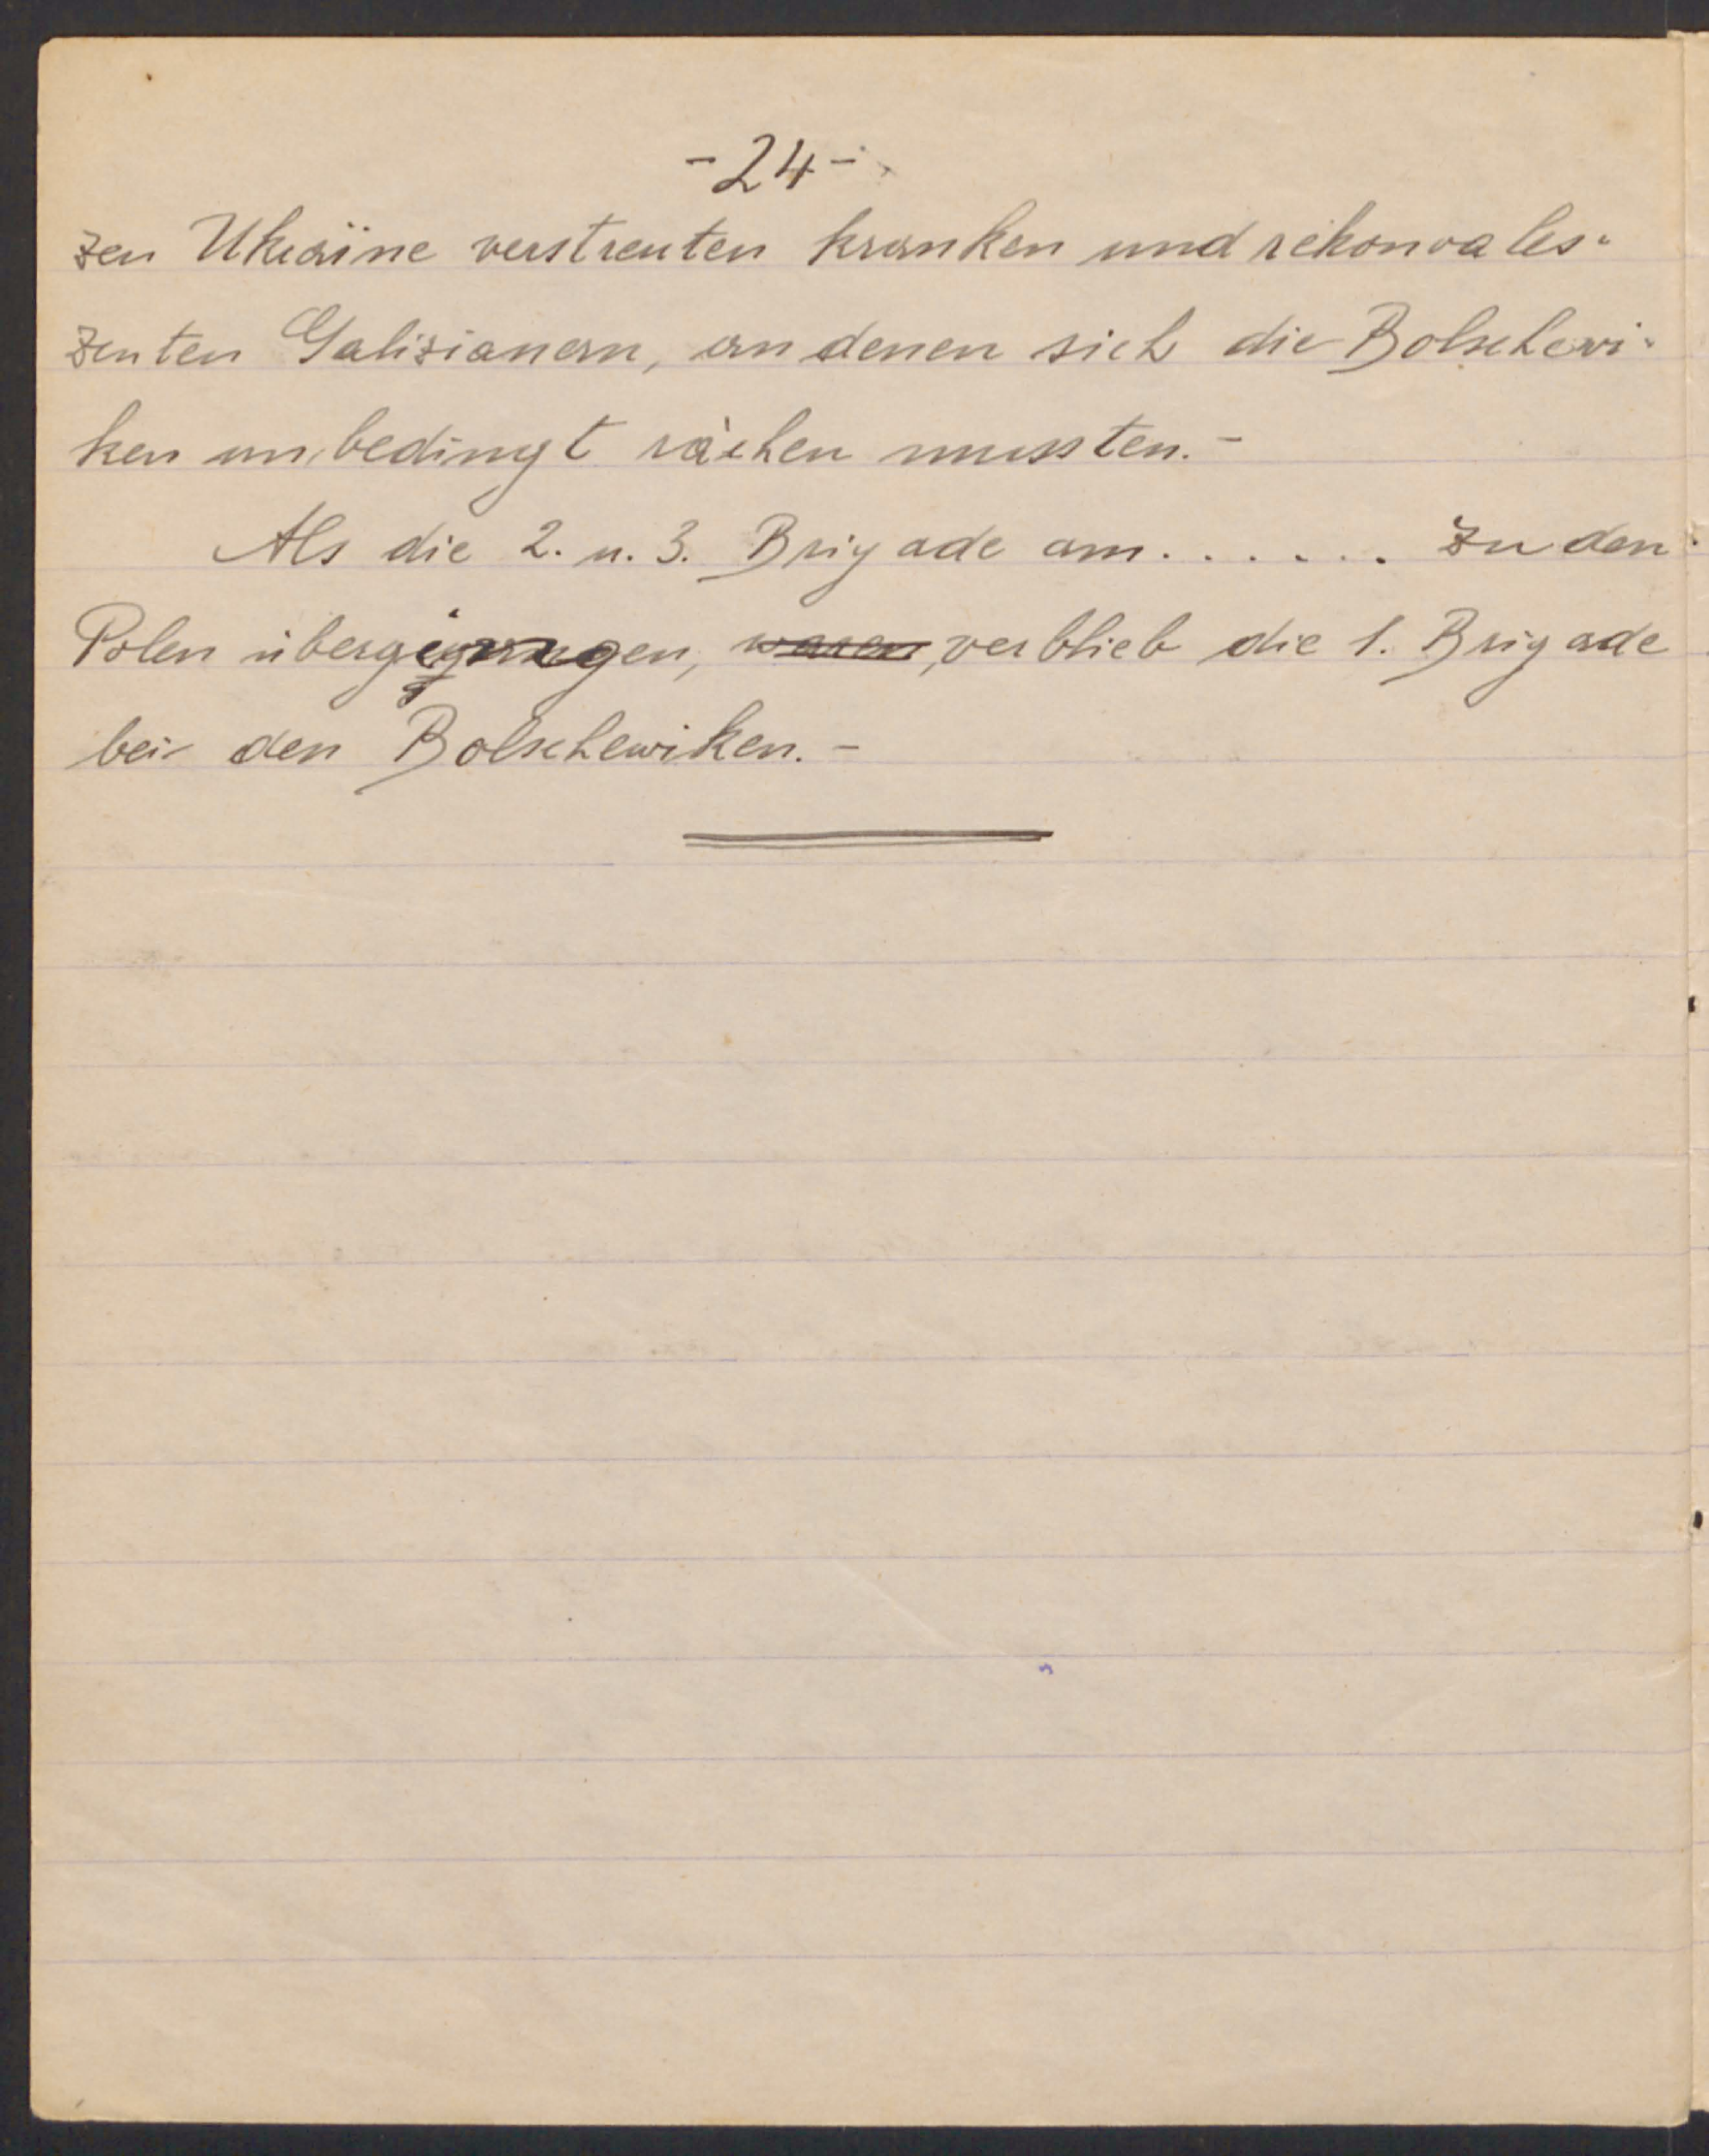 -24-
zen Ukraine verstreuten kranken und rekonvales-
zenten Galizianern, an denen sich die Bolschewi-
ken unbedingt rächen mussten.-
Als die 2. u. 3. Brigade am...... zu den
Polen übergingen, waren, verblieb die 1. Brigade
bei den Bolschewiken.-